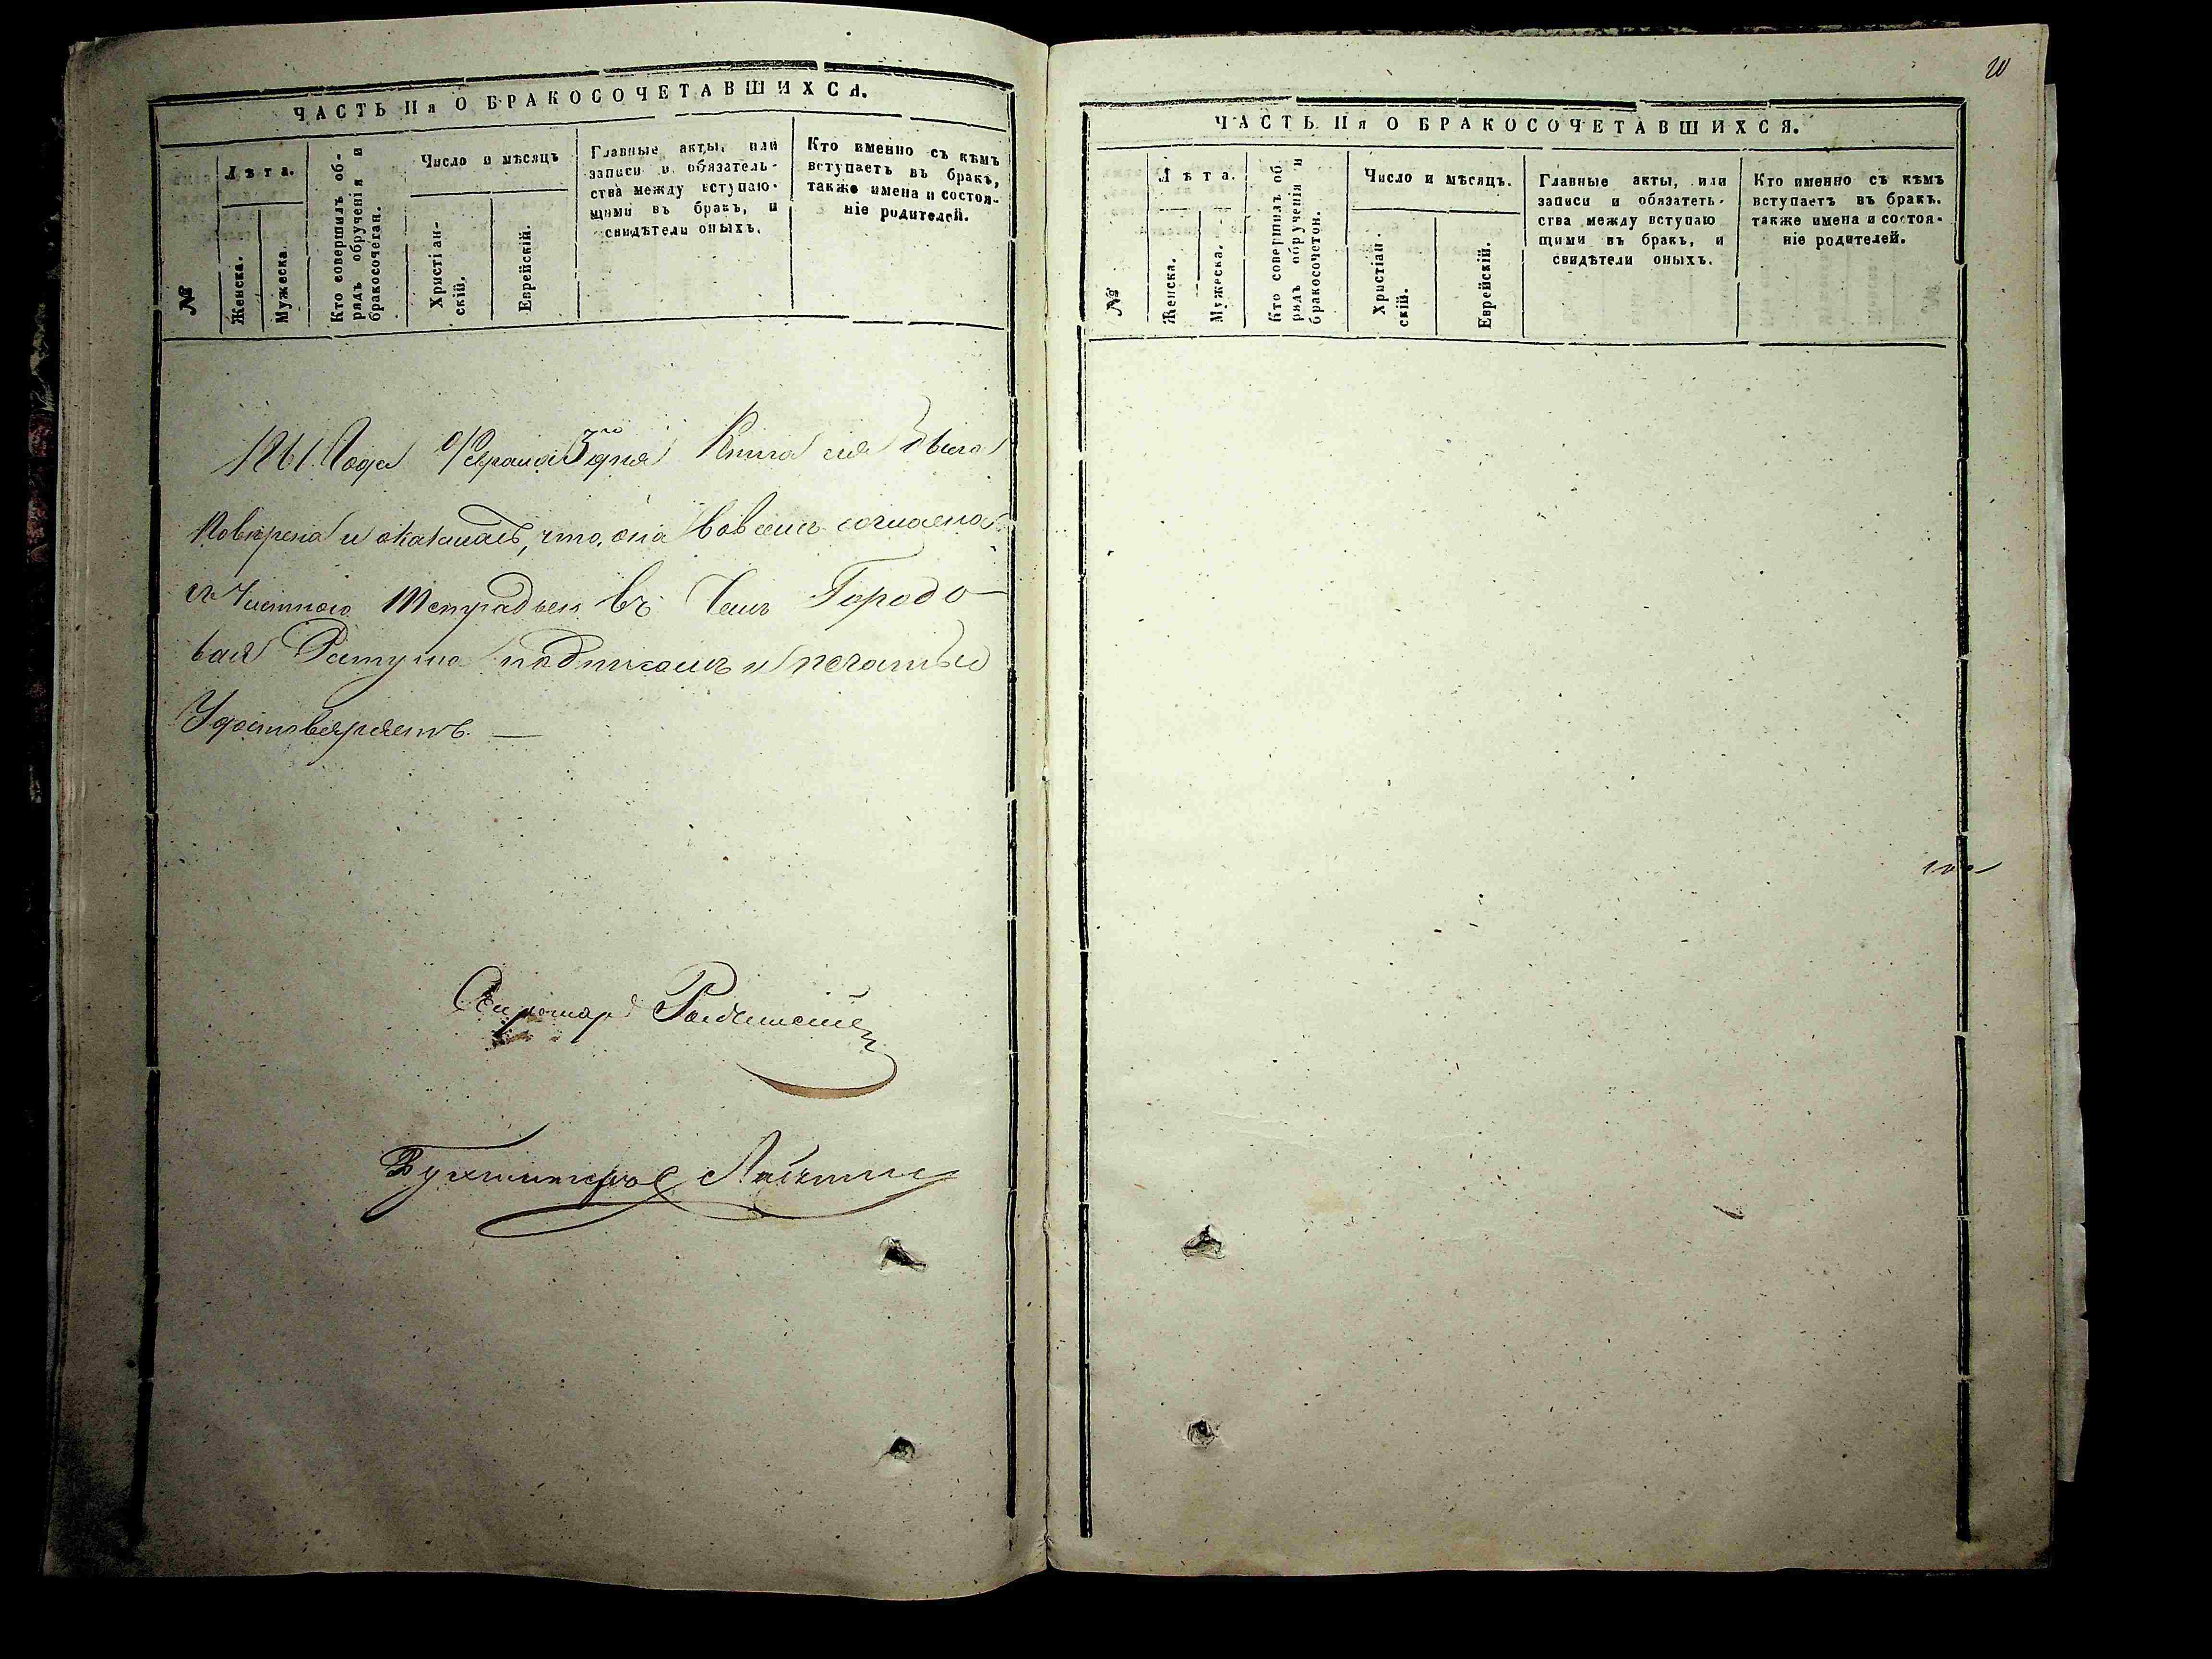 ЧАСТЬ IIя О БРАКОСОЧЕТАВШИХСЯ.
№
Лѣта.
Женска.
Мужеска.
Кто совершилъ об-
рядъ обрученія и
бракосочетан.
Число и мѣсяцъ
Христіан-
скій.
Еврейскій.
Главные акты, или
записи и обязатель-
ства между вступаю-
щими въ бракъ, и
свидѣтели оныхъ.
Кто именно съ кѣмъ
вступаетъ въ бракъ,
также имена и состоя-
ніе родителей.
1861 Года Февраля 3го дня Книга сія была
Повѣрена и оказалась, что она вовсемъ согласна
съ Чистною Тетрадью въ Чемъ Городо-
вая Ратуша подписомъ и печатью
Удостовѣряетъ. —
Бургомистръ
ЧАСТЬ IIя О БРАКОСОЧЕТАВШИХСЯ.
№
Лѣта.
Женска.
Мужеска.
Кто совершилъ об
рядъ обрученія и
бракосочетон.
Число и мѣсяцъ.
Христіан-
скій.
Еврейскій.
Главные акты, или
записи и обязатеть-
ства между вступаю
щими въ бракъ, и
свидѣтели оныхъ.
Кто именно съ кѣмъ
вступаетъ въ бракъ.
также имена и состоя-
ніе родителей.
20